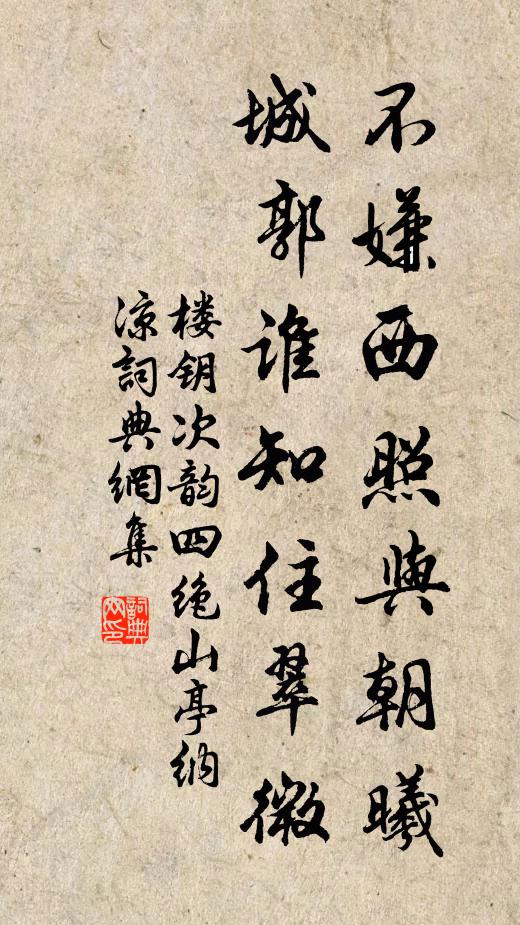 不嫌西照與朝曦
城郭谁知住翠微
楼钥次韵四绝山亭纳
凉詞典網集
詞典
网印